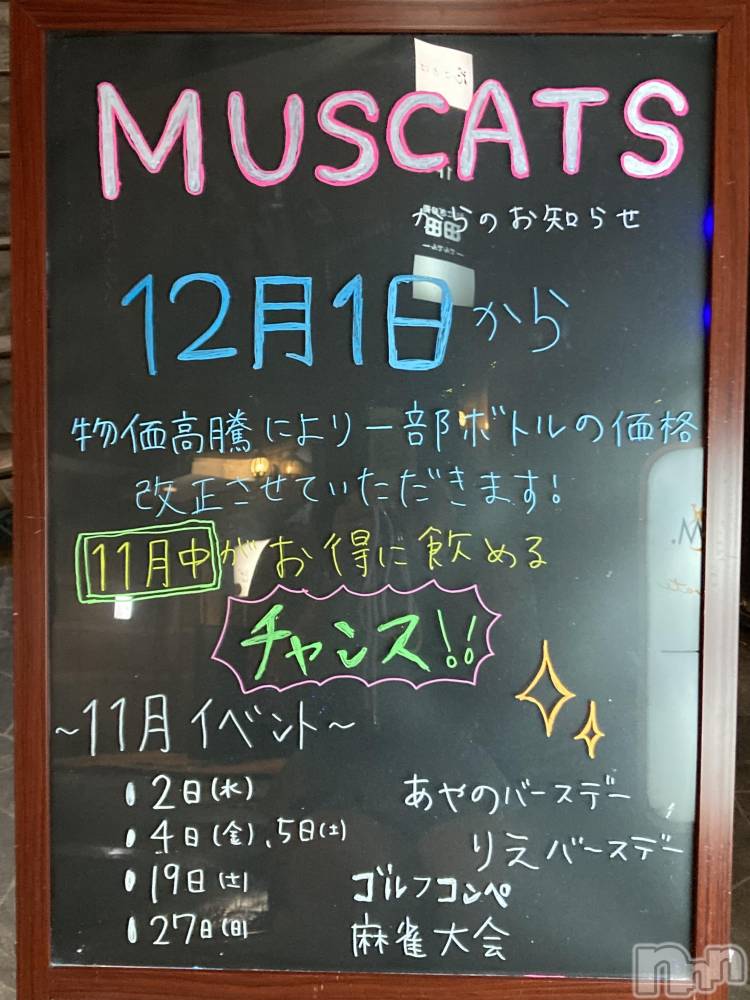 MUSCATS
からのお知らせ
12月1日から
物価高騰により一部ボトルの価格
改正させていただきます!
11月中がお得に飲める
チャンス!!
~11月イベント~
• 2日(水) あやのバースデー
• 4日(金)、5日(土) りえバースデー
• 19日(土) ゴルフコンペ
• 27日(日) 麻雀大会